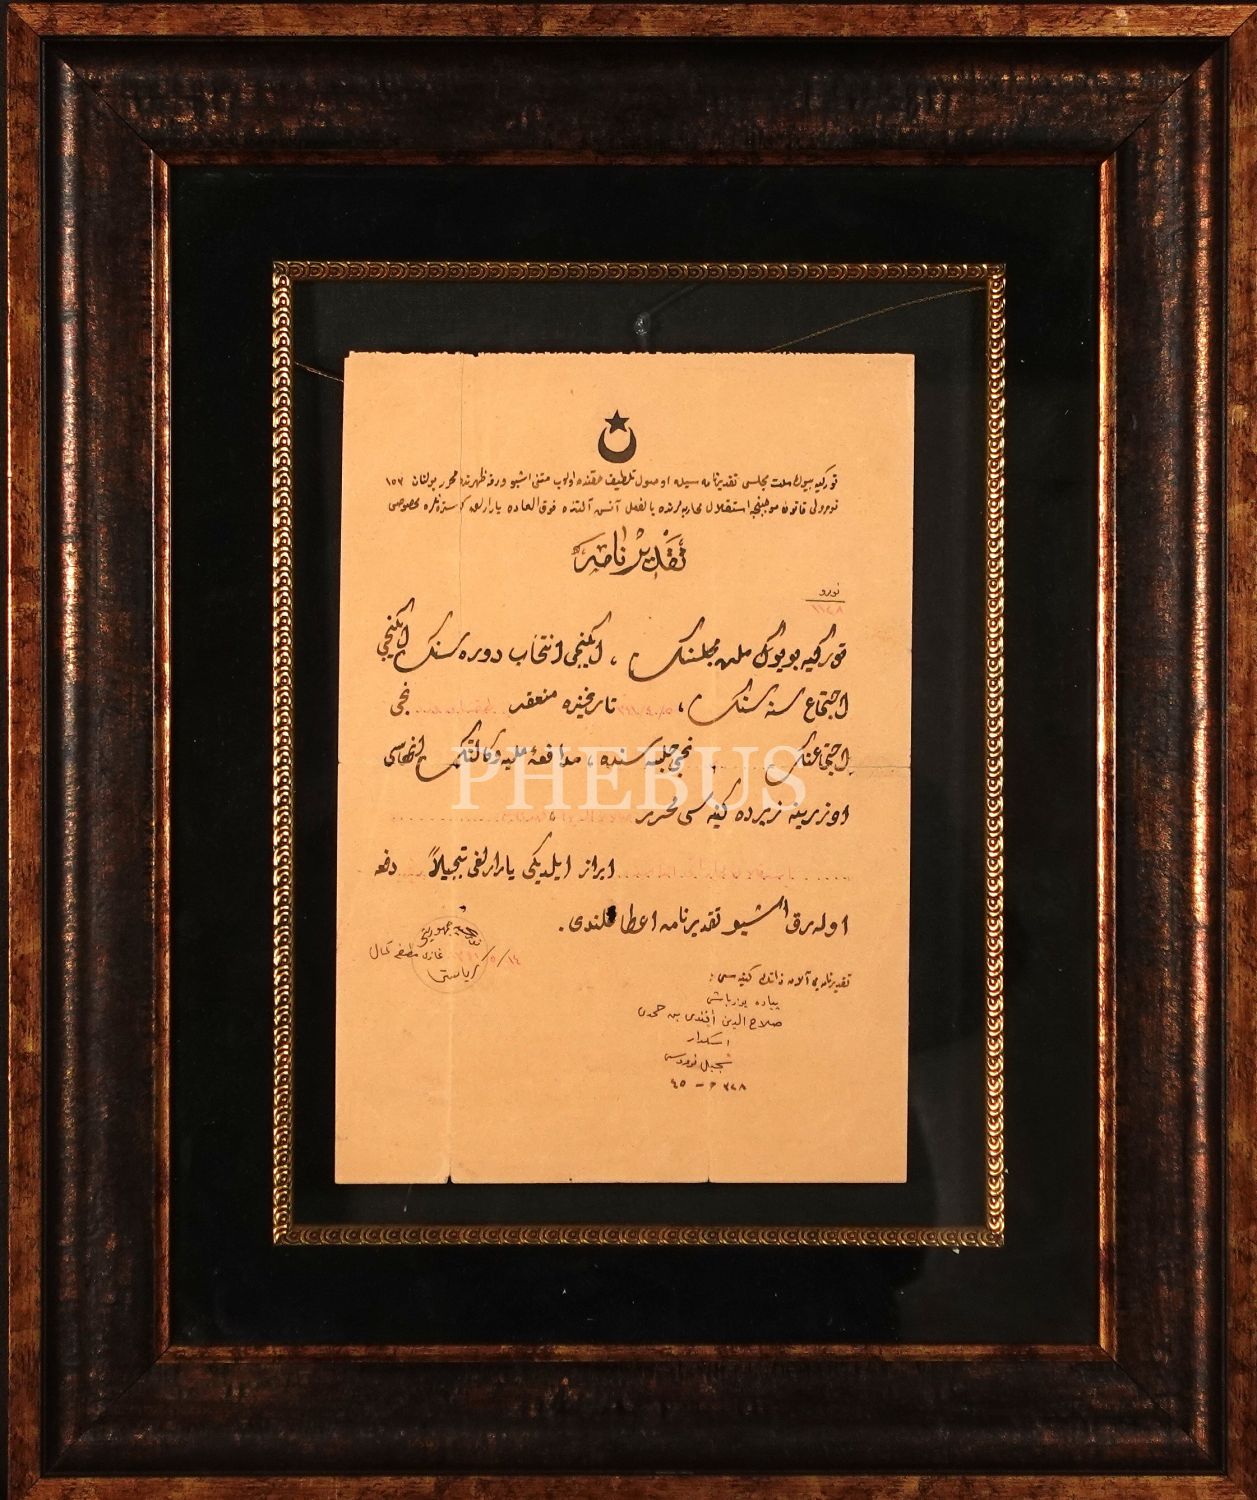 توركیه بیوك ملت مجلسی تقدیرنامه سیله اوصول تلطیف حقنده اولوب متنی اشبو ورقه ظهرنده محرر بولنان ١٥٣
نومرولی قانون موجبنجه استقلال محاربه لرنده بالفعل آتش آلتنده فوق العاده یارارلق كوسترنلره مخصوص
تقدیرنامه
نومرو
١١٤٨
توركیه بویوك ملت مجلسنك ، ایكنجی انتخاب دوره سنك ایكنجی
اجتماع سنه سنك ، تاریخنده منعقد نجی
اجتماعنك نجی جلسه سنده ، مدافعهٔ ملیه وكالتنك انهاسی
PHEBUS
اوزرینه زیرده كنیه سی محرر
ابراز ایلدیكی یارارلغی تبجیلاً دفعه
اوله رق اشبو تقدیرنامه اعطا قلندی .
توركیه جمهوریتی
ریاستی
غازی مصطفی كمال
تقدیرنامه یی آلان ذاتك كنیه سی :
پیاده یوزباشی
صلاح الدین افندی بن حمدی
اسكدار
سجل نومروسی
٣٢٨ م – ٤٥